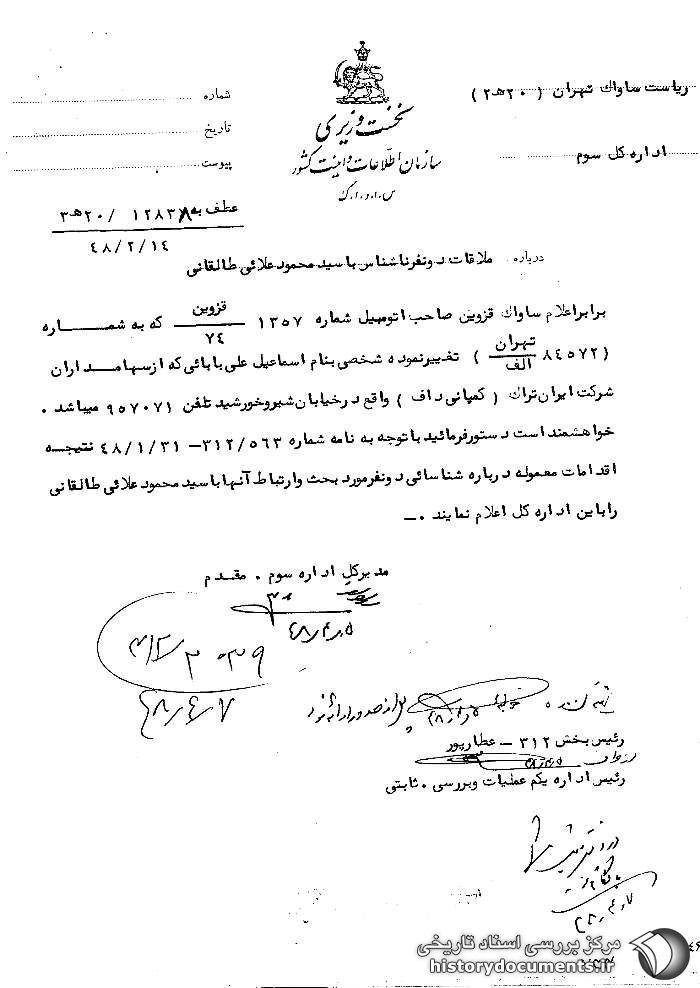 ریاست ساواک تهران ( ۲۰هـ۲ )
شماره
نخست وزیری
تاریخ
سازمان اطلاعات و امنیت کشور
پیوست
اداره کل سوم
س.ا.و.ا.ک
عطف به ۱۲۸۳۸ / ۲۰هـ۳
۴۸/۲/۱۴
درباره . ملاقات دونفرناشناس با سید محمود علائی طالقانی
برابراعلام ساواک قزوین صاحب اتومبیل شماره ۱۳۵۷ قزوین ۷۴ که به شمـــــاره
( ۸۴۵۷۲ تهران الف ) تغییرنموده شخصی بنام اسماعیل علی بابائی که ازسهامــداران
شرکت ایران تراک ( کمپانی داف ) واقع درخیابان شیروخورشید تلفن ۹۵۷۰۷۱ میباشد .
خواهشمند است دستورفرمائید با توجه به نامه شماره ۳۱۲/۵۶۳ – ۴۸/۱/۳۱ نتیجــه
اقدامات معموله درباره شناسائی دونفرمورد بحث وارتباط آنها با سید محمود علائی طالقانی
را باین اداره کل اعلام نمایند .ــ
مدیرکل اداره سوم . مقدم
۴۸/۴/۵
۳۱۲/۲۰۳۹
۴۸/۴/۷
پس از صدور ارائه شود
رئیس بخش ۳۱۲ – عطارپور
رئیس اداره یکم عملیات وبررسی . ثابتی
۴۸/۴/۷
مرکز بررسی اسناد تاریخی
historydocuments.ir